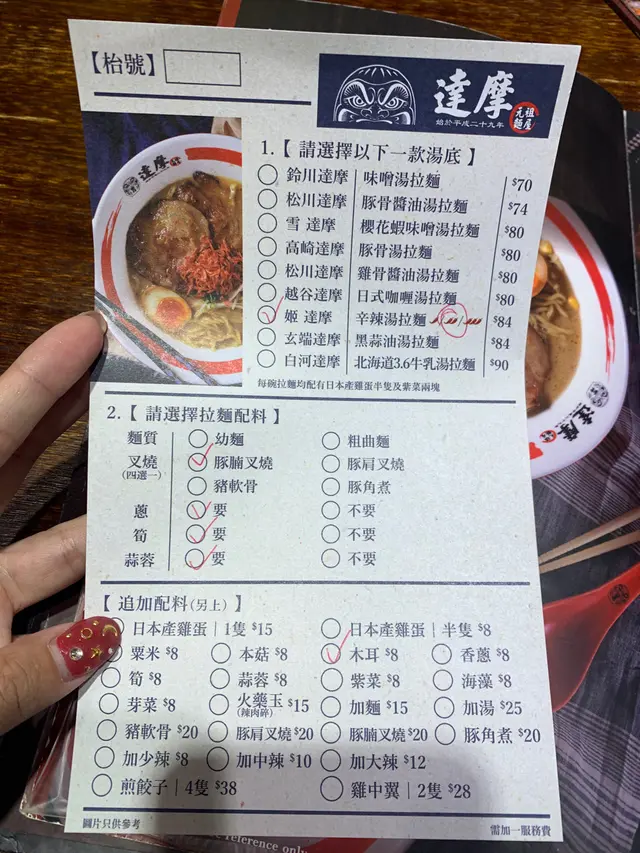 【枱號】
達摩
始於平成二十九年
元祖
麵屋
達摩
1.【 請選擇以下一款湯底 】
鈴川達摩 味噌湯拉麵 $70
松川達摩 豚骨醬油湯拉麵 $74
雪 達摩 櫻花蝦味噌湯拉麵 $80
高崎達摩 豚骨湯拉麵 $80
松川達摩 雞骨醬油湯拉麵 $80
越谷達摩 日式咖喱湯拉麵 $80
姬 達摩 辛辣湯拉麵 $84
玄端達摩 黑蒜油湯拉麵 $84
白河達摩 北海道3.6牛乳湯拉麵 $90
每碗拉麵均配有日本產雞蛋半隻及紫菜兩塊
2.【 請選擇拉麵配料 】
麵質 幼麵 粗曲麵
叉燒 豚腩叉燒 豚肩叉燒
(四選一)
豬軟骨 豚角煮
蔥 要 不要
筍 要 不要
蒜蓉 要 不要
【 追加配料(另上) 】
日本產雞蛋 | 1隻 $15 日本產雞蛋 | 半隻 $8
粟米 $8 本菇 $8 木耳 $8 香蔥 $8
筍 $8 蒜蓉 $8 紫菜 $8 海藻 $8
芽菜 $8 火藥玉 $15 加麵 $15 加湯 $25
(辣肉碎)
豬軟骨 $20 豚肩叉燒 $20 豚腩叉燒 $20 豚角煮 $20
加少辣 $8 加中辣 $10 加大辣 $12
煎餃子 | 4隻 $38 雞中翼 | 2隻 $28
圖片只供參考 需加一服務費
達摩
reference only